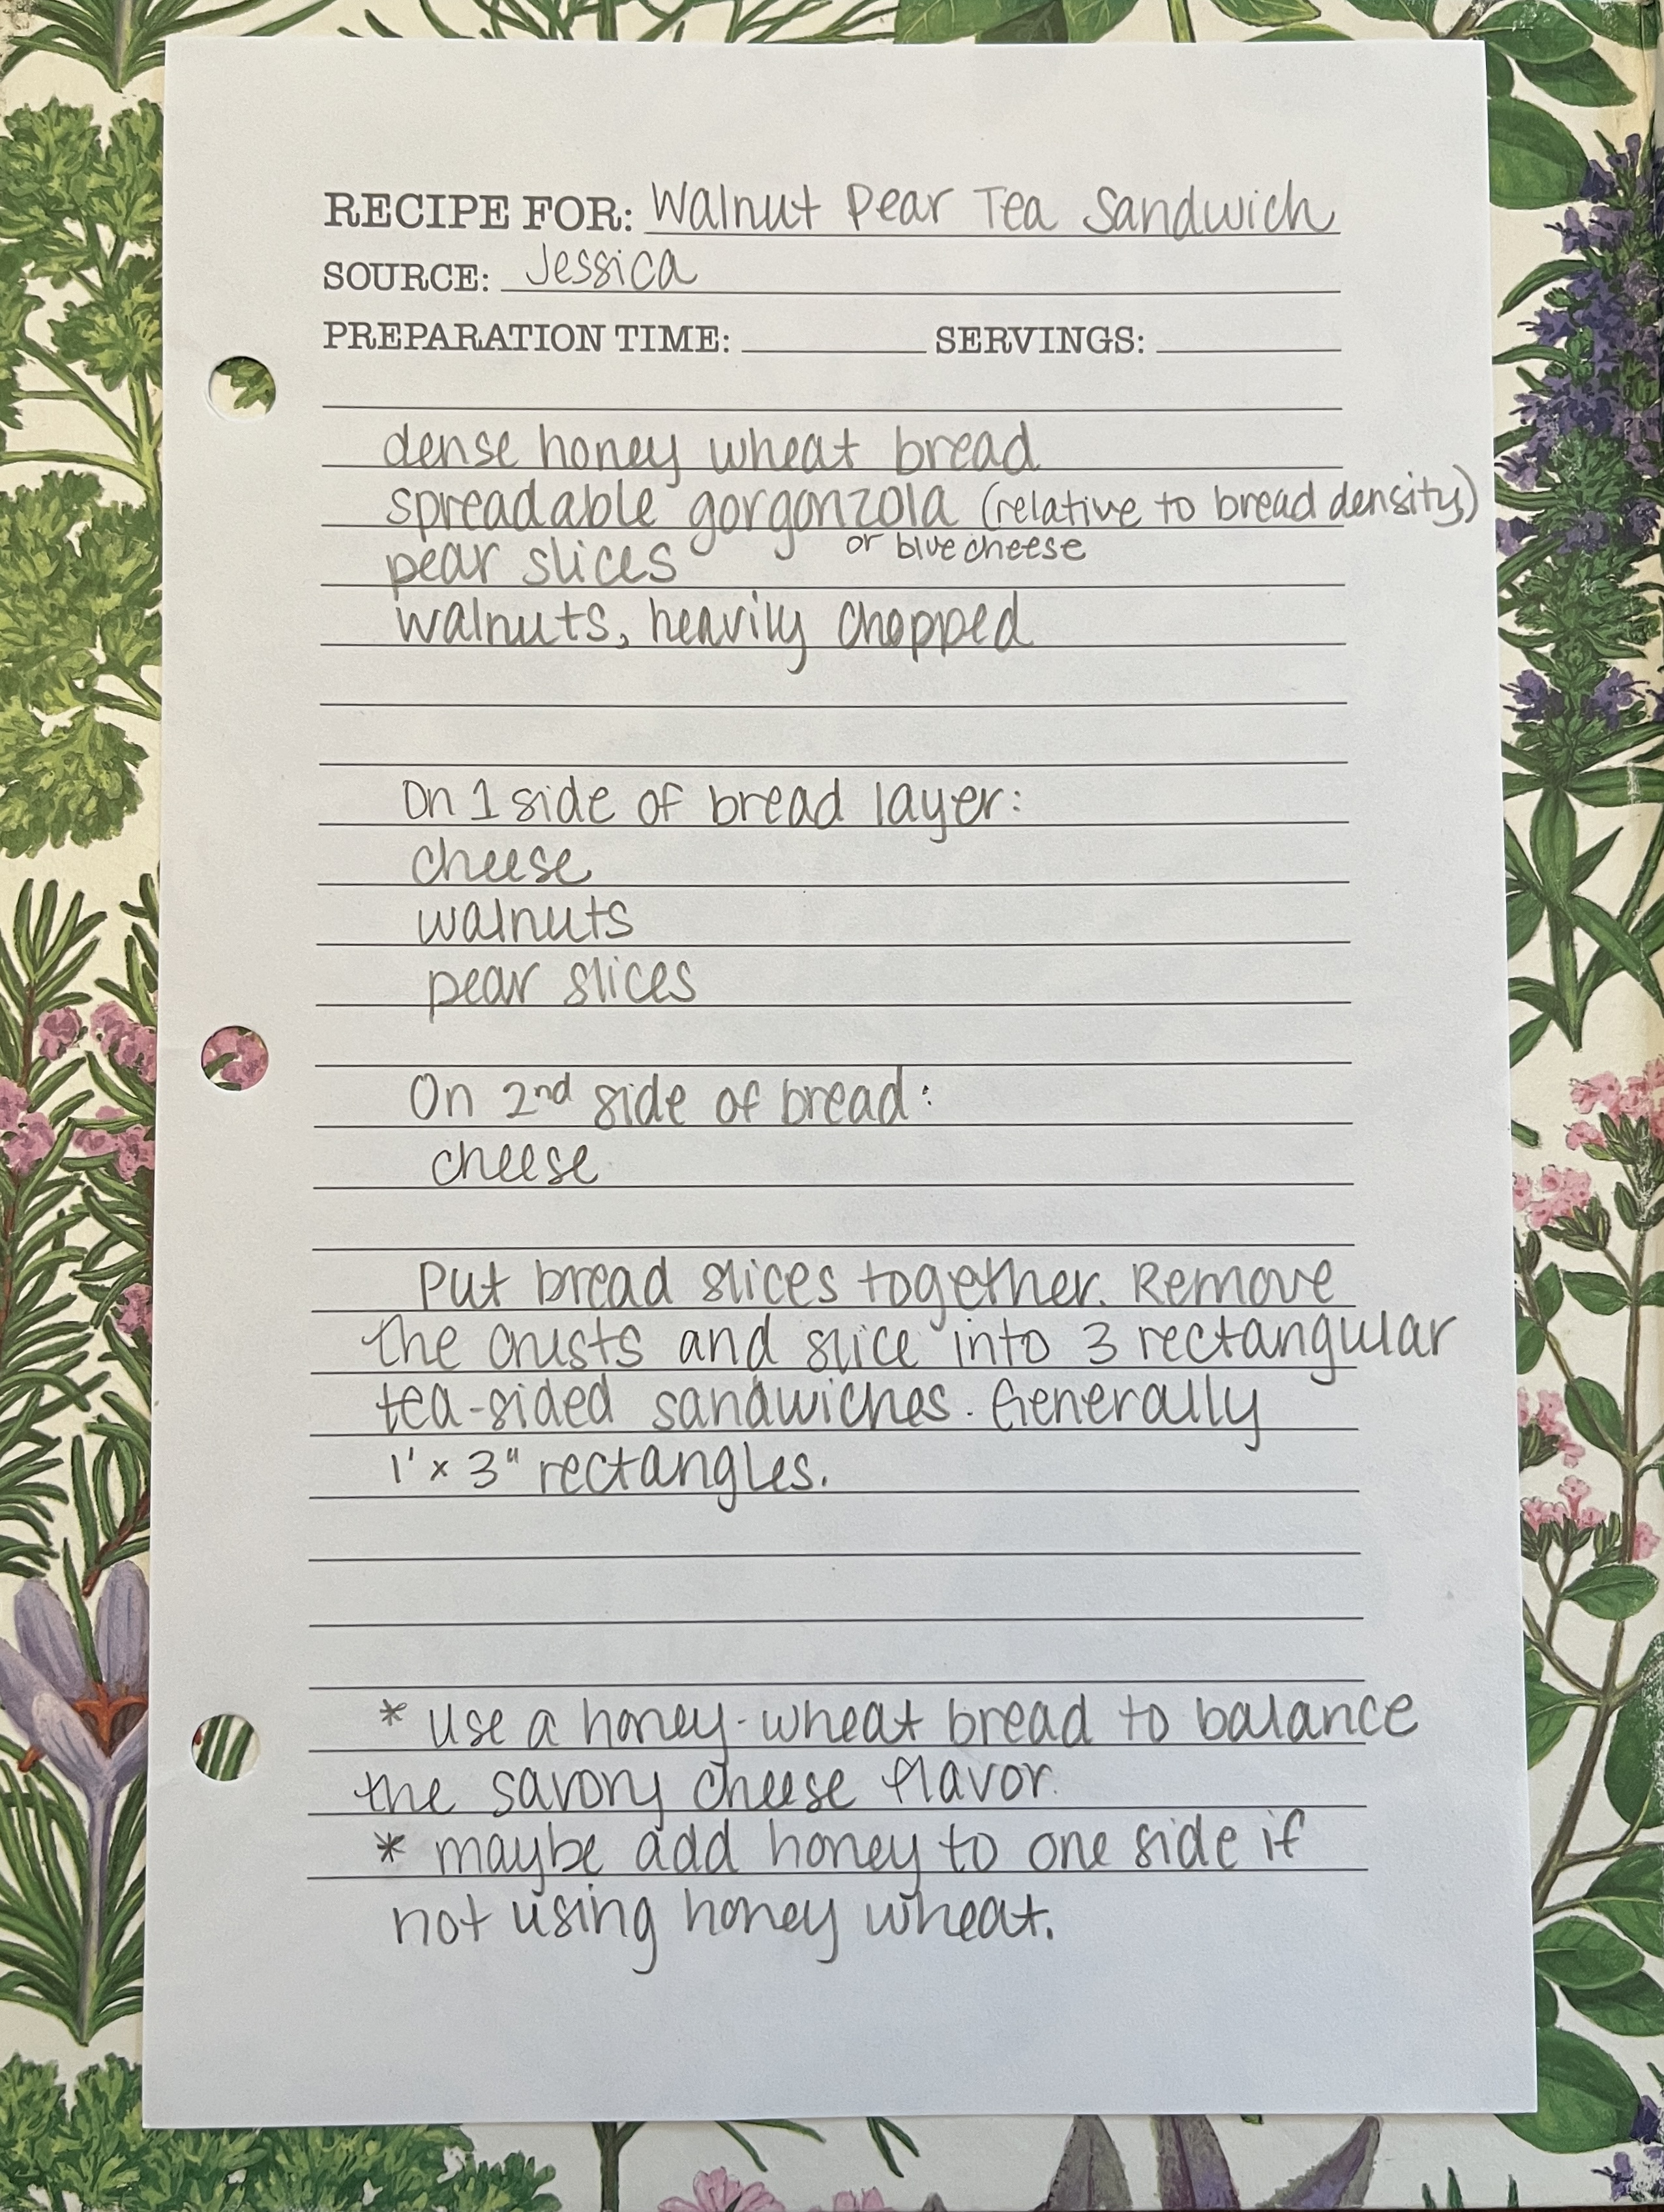 RECIPE FOR: Walnut Pear Tea Sandwich
SOURCE: Jessica
PREPARATION TIME: SERVINGS:
dense honey wheat bread
spreadable gorgonzola (relative to bread density)
or blue cheese
pear slices
walnuts, heavily chopped
On 1 side of bread layer:
cheese
walnuts
pear slices
On 2nd side of bread:
cheese
Put bread slices together. Remove
the crusts and slice into 3 rectangular
tea-sided sandwiches. Generally
1' x 3" rectangles.
* Use a honey-wheat bread to balance
the savory cheese flavor.
* maybe add honey to one side if
not using honey wheat.